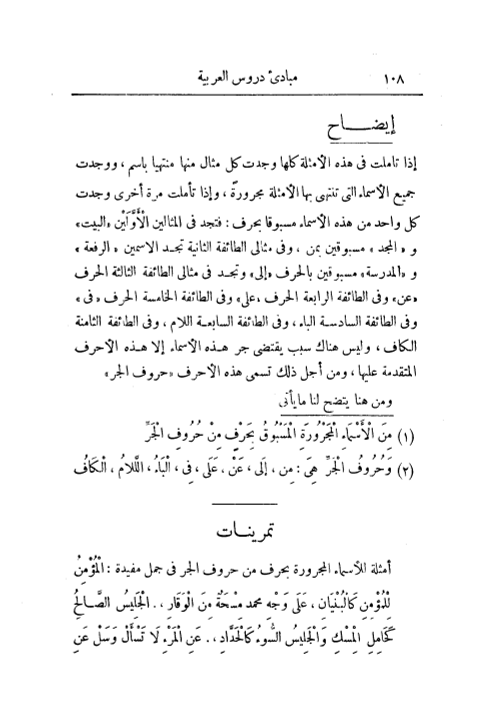 ١٠٨ مبادئ دروس العربية
إيضـــاح
إذا تاملت فى هذه الامثلة كلها وجدت كل مثال منها منتهيا باسم ، ووجدت
جميع الاسماء التى تنتهى بها الامثلة مجرورة ، وإذا تأملت مرة أخرى وجدت
كل واحد من هذه الاسماء مسبوقا بحرف : فتجد فى المثالين الْأَوَّلَيْن «البيت»
و « المجد » مسبوقين بمن ، وفى مثالى الطائفة الثانية تجـد الاسمين « الرفعة »
و « المدرسة » مسبوقين بالحرف «إلى» وتجـد فى مثالى الطائفة الثالثة الحرف
«عن» وفى الطائفة الرابعة الحرف «على» وفى الطائفة الخامسة الحرف « فى »
وفى الطائفة السادسـة الباء ، وفى الطائفة السابعـة اللام ، وفى الطائفة الثامنة
الكاف ، وليس هناك سبب يقتضى جر هـذه الاسماء إلا هـذه الاحرف
المتقدمة عليها ، ومن أجل ذلك تسمى هذه الاحرف «حروف الجر»
ومن هنا يتضح لنا ما يأتى
(١) مِنَ الْأَسْمَاءِ الْمَجْرُورَةِ الْمَسْبُوقُ بِحَرْفٍ مِنْ حُرُوفِ الْجَرِّ
(٢) وَحُرُوفُ الْجَرِّ هِىَ : مِن ، إلَى ، عَنْ ، عَلَى ، فِى ، الْبَاءُ ، اللَّامُ ، الْكَافُ
تمرينات
أمثلة للأسماء المجرورة بحرف من حروف الجر فى جمل مفيدة : الْمُؤْمِنُ
لِلْمُؤْمِنِ كَالْبُنْيَانِ ، عَلَى وَجْهِ محمد مِسْحَةٌ مِنَ الْوَقَارِ .، الْجَلِيسُ الصَّالِحُ
كَحَامِلِ الْمِسْكِ وَالْجَلِيسُ السُّوءُ كَالْحَدَّادِ .، عَنِ الْمَرْءِ لَا تَسْأَلْ وَسَلْ عَنْ